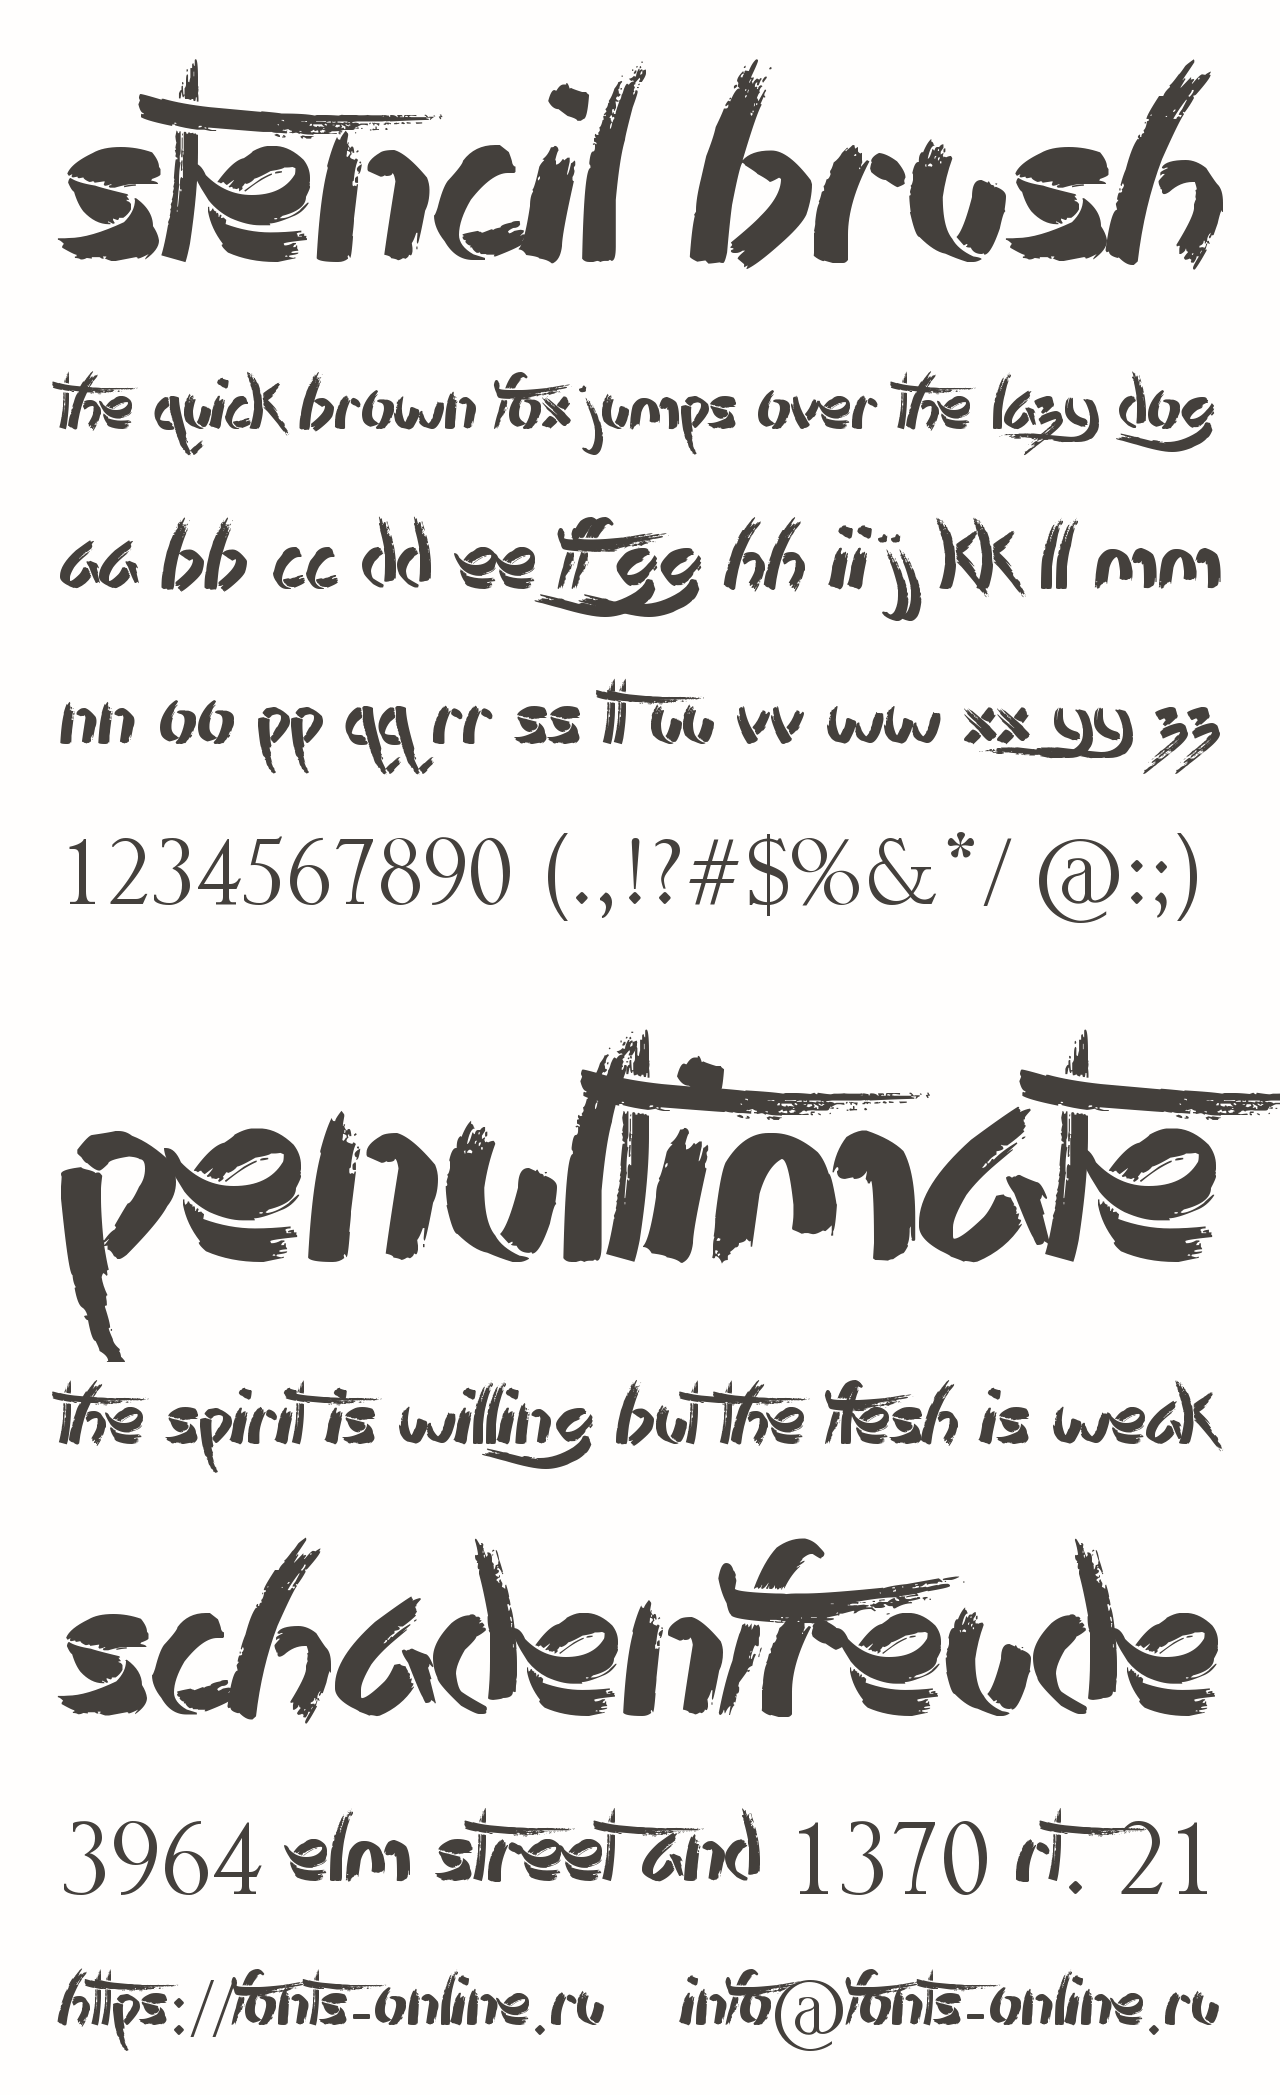 stencil brush
the quick brown fox jumps over the lazy dog
aa bb cc dd ee ff gg hh ii jj kk ll mm
nn oo pp qq rr ss tt uu vv ww xx yy zz
1234567890 (.,!?#$%&*/ @:;)
penultimate
the spirit is willing but the flesh is weak
schadenfreude
3964 elm street and 1370 rt. 21
https://fonts-online.ru info@fonts-online.ru